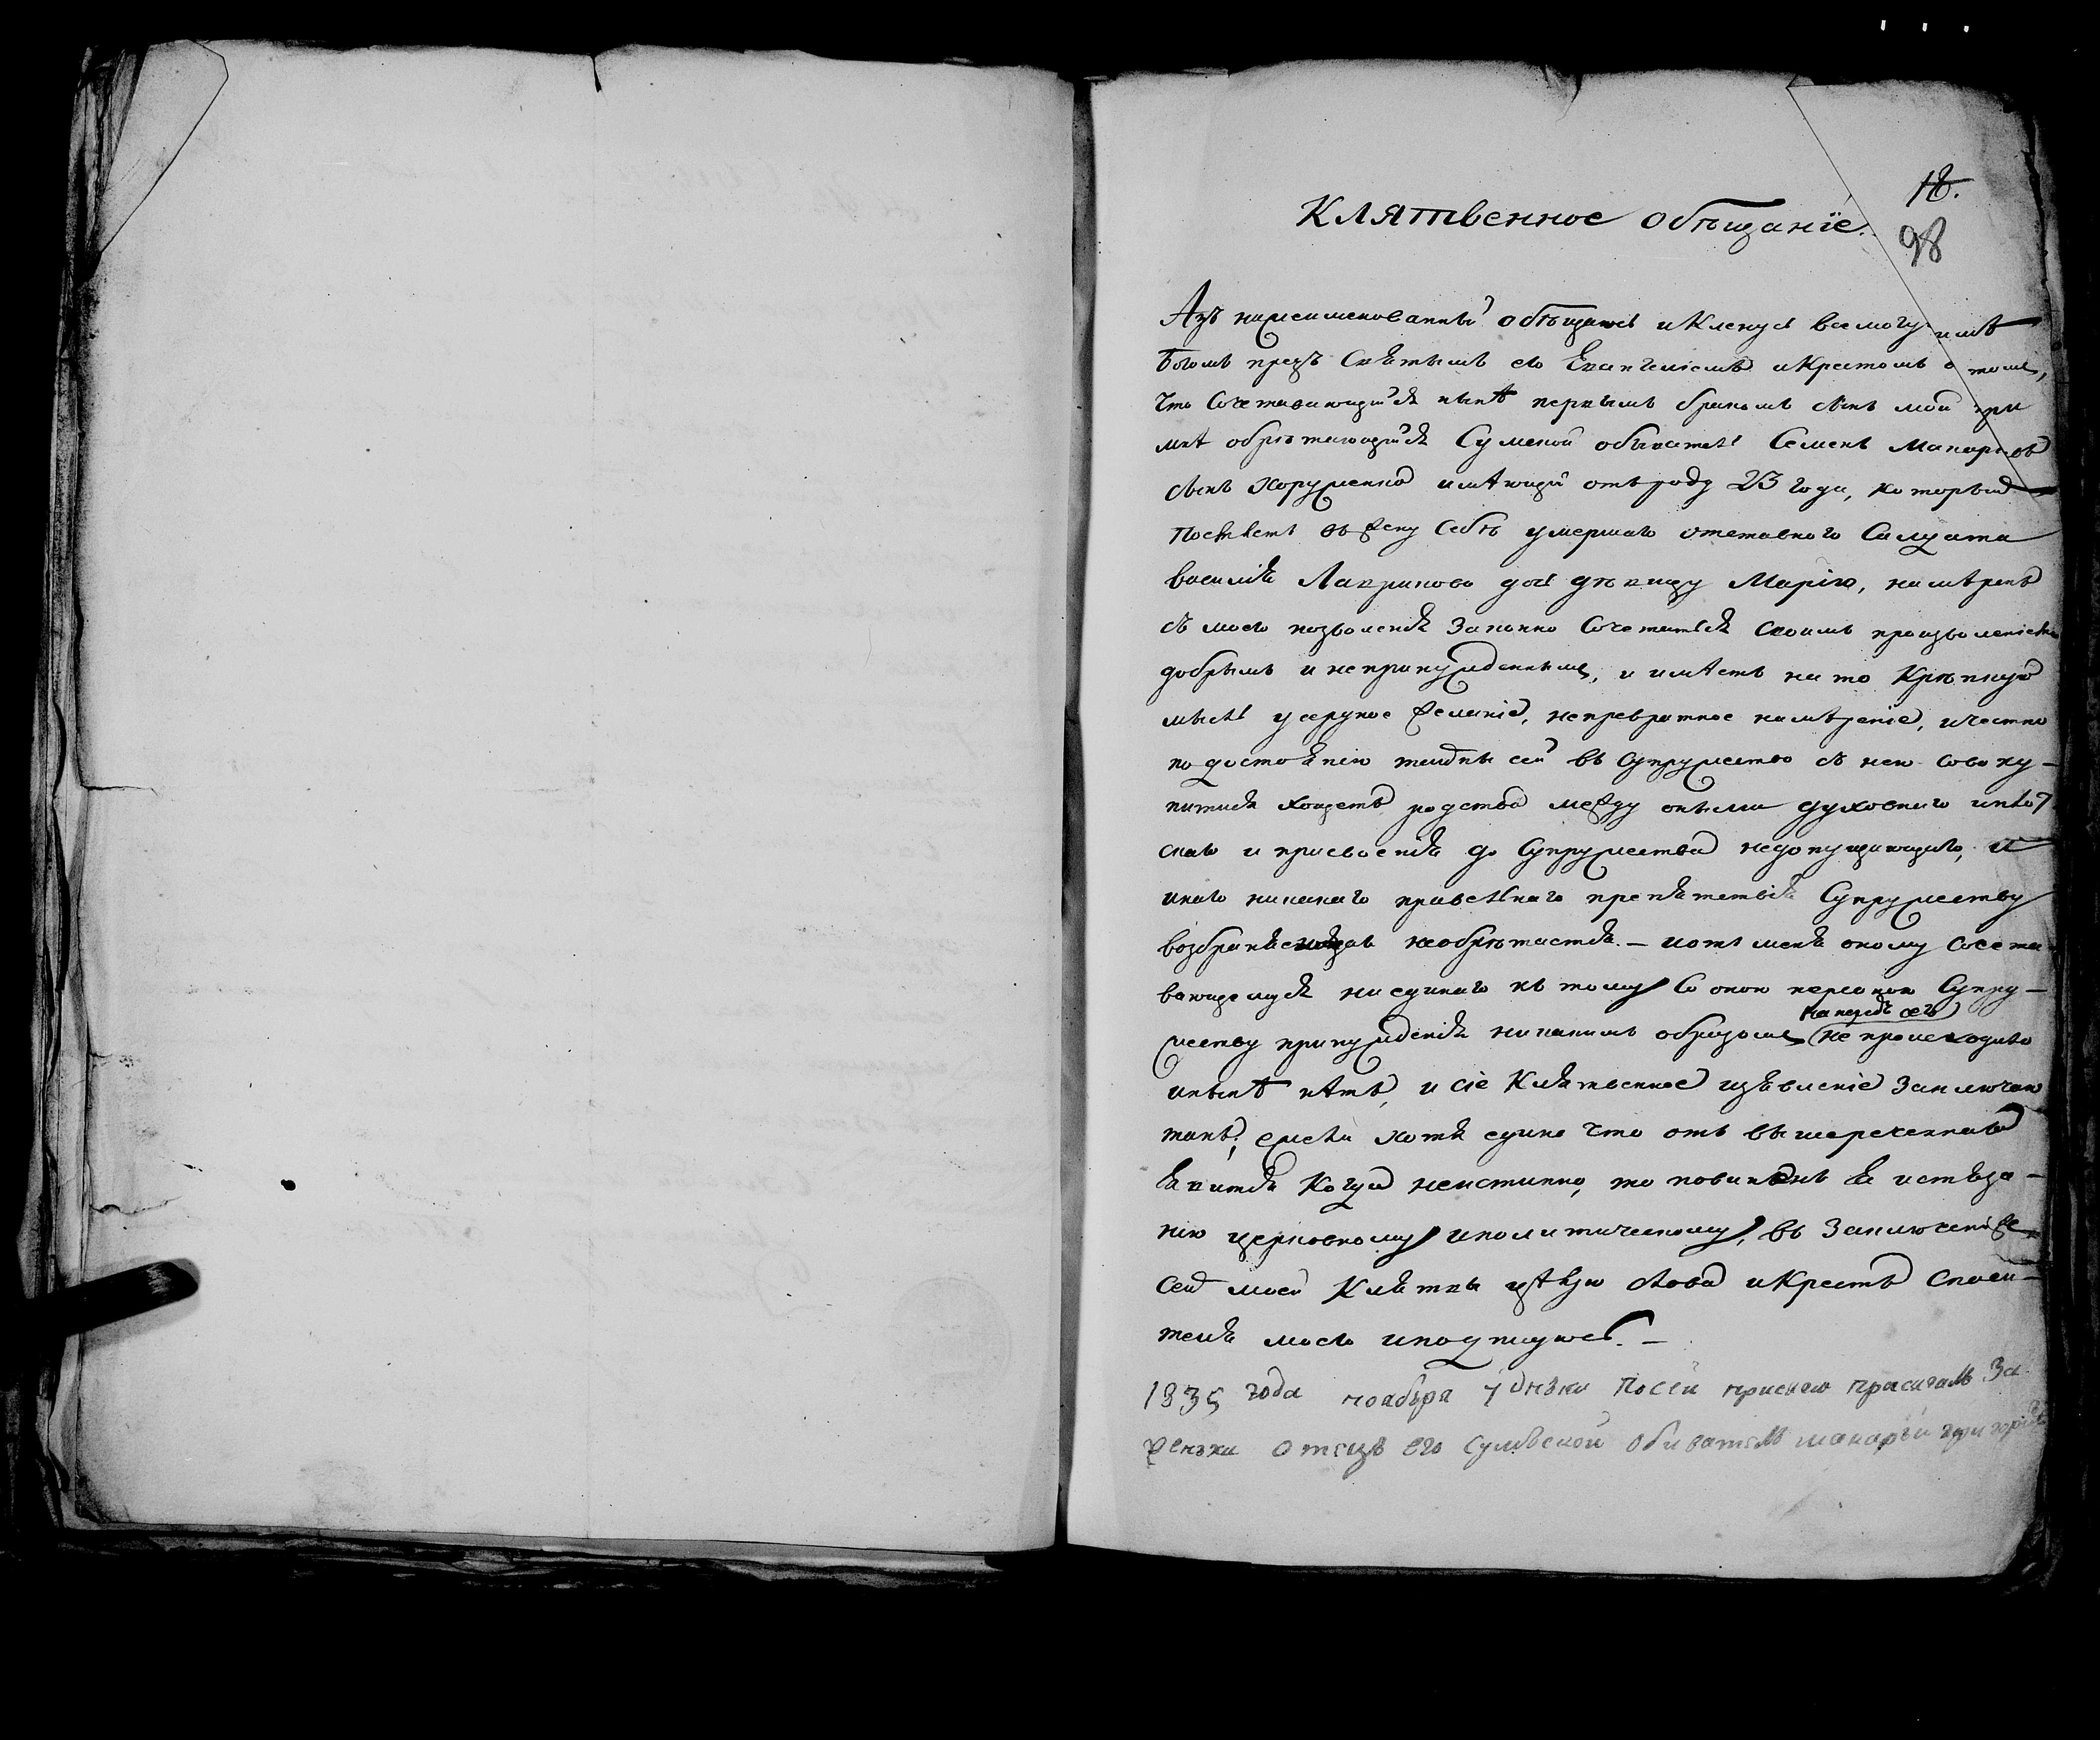 18.
Клятвенное обѣщанїе.
98
Азъ нижеименованный обѣщаюсь и Кленусь всемогущимъ
Богомъ предъ Святымъ его Евангеліемъ и Крестомъ о томъ,
что Сочетавающійся нынѣ первымъ бракомъ сынъ мой при
мнѣ обрѣтающійся Сумской обыватель Семенъ Макаріовъ
сынъ Хоруженко имѣющій отъ роду 23 года, который
Поемлетъ въ жену Себѣ умершаго отставного Салдата
Василія Лавринова дочь дѣвицу Марію, намѣренъ
съ моего позволенія Законно Сочетаться своимъ произволеніемъ
добрымъ и непринужденнымъ, и имѣетъ на то Крѣпкую
мысль усердное желаніе, непревратное намѣреніе, и честно
по достоянію тайны сей въ Супружество съ нею Совоку-
питися хощетъ родства между оными духовнаго и плот
скаго и присвоенія до Супружества недопущающаго, и
инаго никакаго правельнаго препятствія Супружеству
возбраняющаго необрѣтается. – и отъ меня оному Сочета
вающемуся ни единаго къ тому Со оною персоною Супру-
напредъ сего
жеству принужденія никакимъ образомъ не происходило
и нынѣ нѣтъ, и сіе Клятвенное изъявленіе Заключаю
такъ; ежели хотя едино что отъ вышереченнаго
явится Когда неистинно, то повиненъ я истяза-
нію церковному и политическому, въ Заключеніе же
Сей моей Клятвы цѣлую слова и Крестъ Спаси-
теля моего и подпишусь. –
1835 года ноября 7 днѣки Посей присягѣ присягалъ За
женъхи отецъ его сумъской обиватель макарій григоріевъ